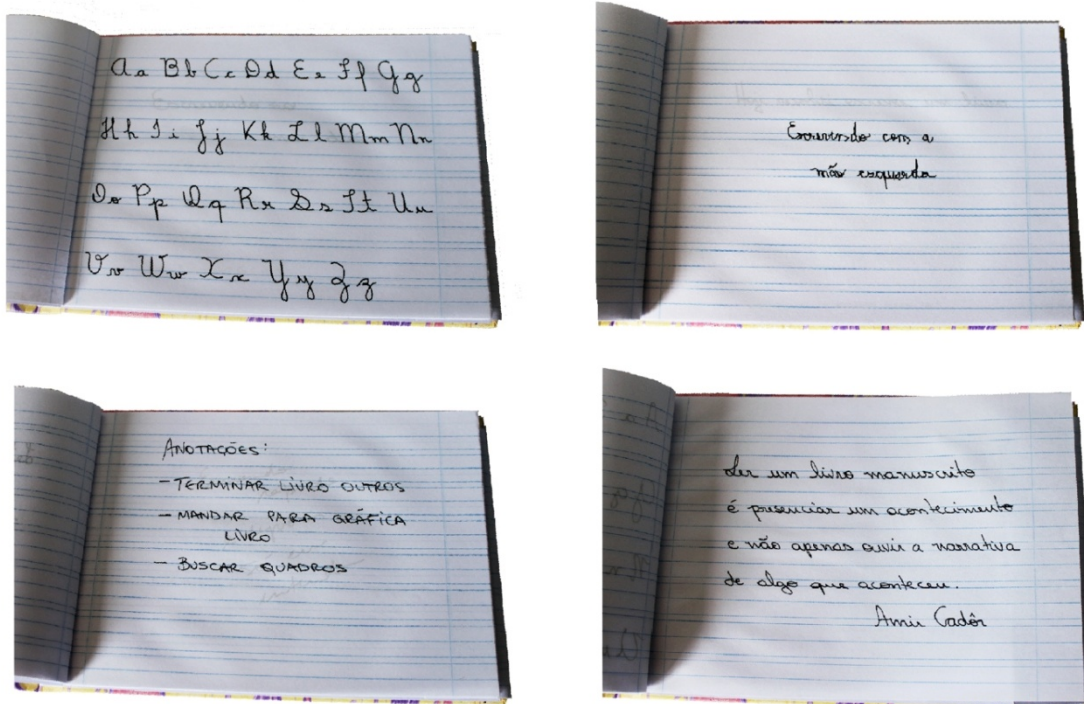 Aa Bb Cc Dd Ee Ff Gg
Hh Ii Jj Kk Ll Mm Nn
Oo Pp Qq Rr Ss Tt Uu
Vv Ww Xx Yy Zz
Escrevendo com a
mão esquerda
ANOTAÇÕES:
- TERMINAR LIVRO OUTROS
- MANDAR PARA GRÁFICA
LIVRO
- BUSCAR QUADROS
Ler um livro manuscrito
é presenciar um acontecimento
e não apenas ouvir a narrativa
de algo que aconteceu.
Amir Cadôr